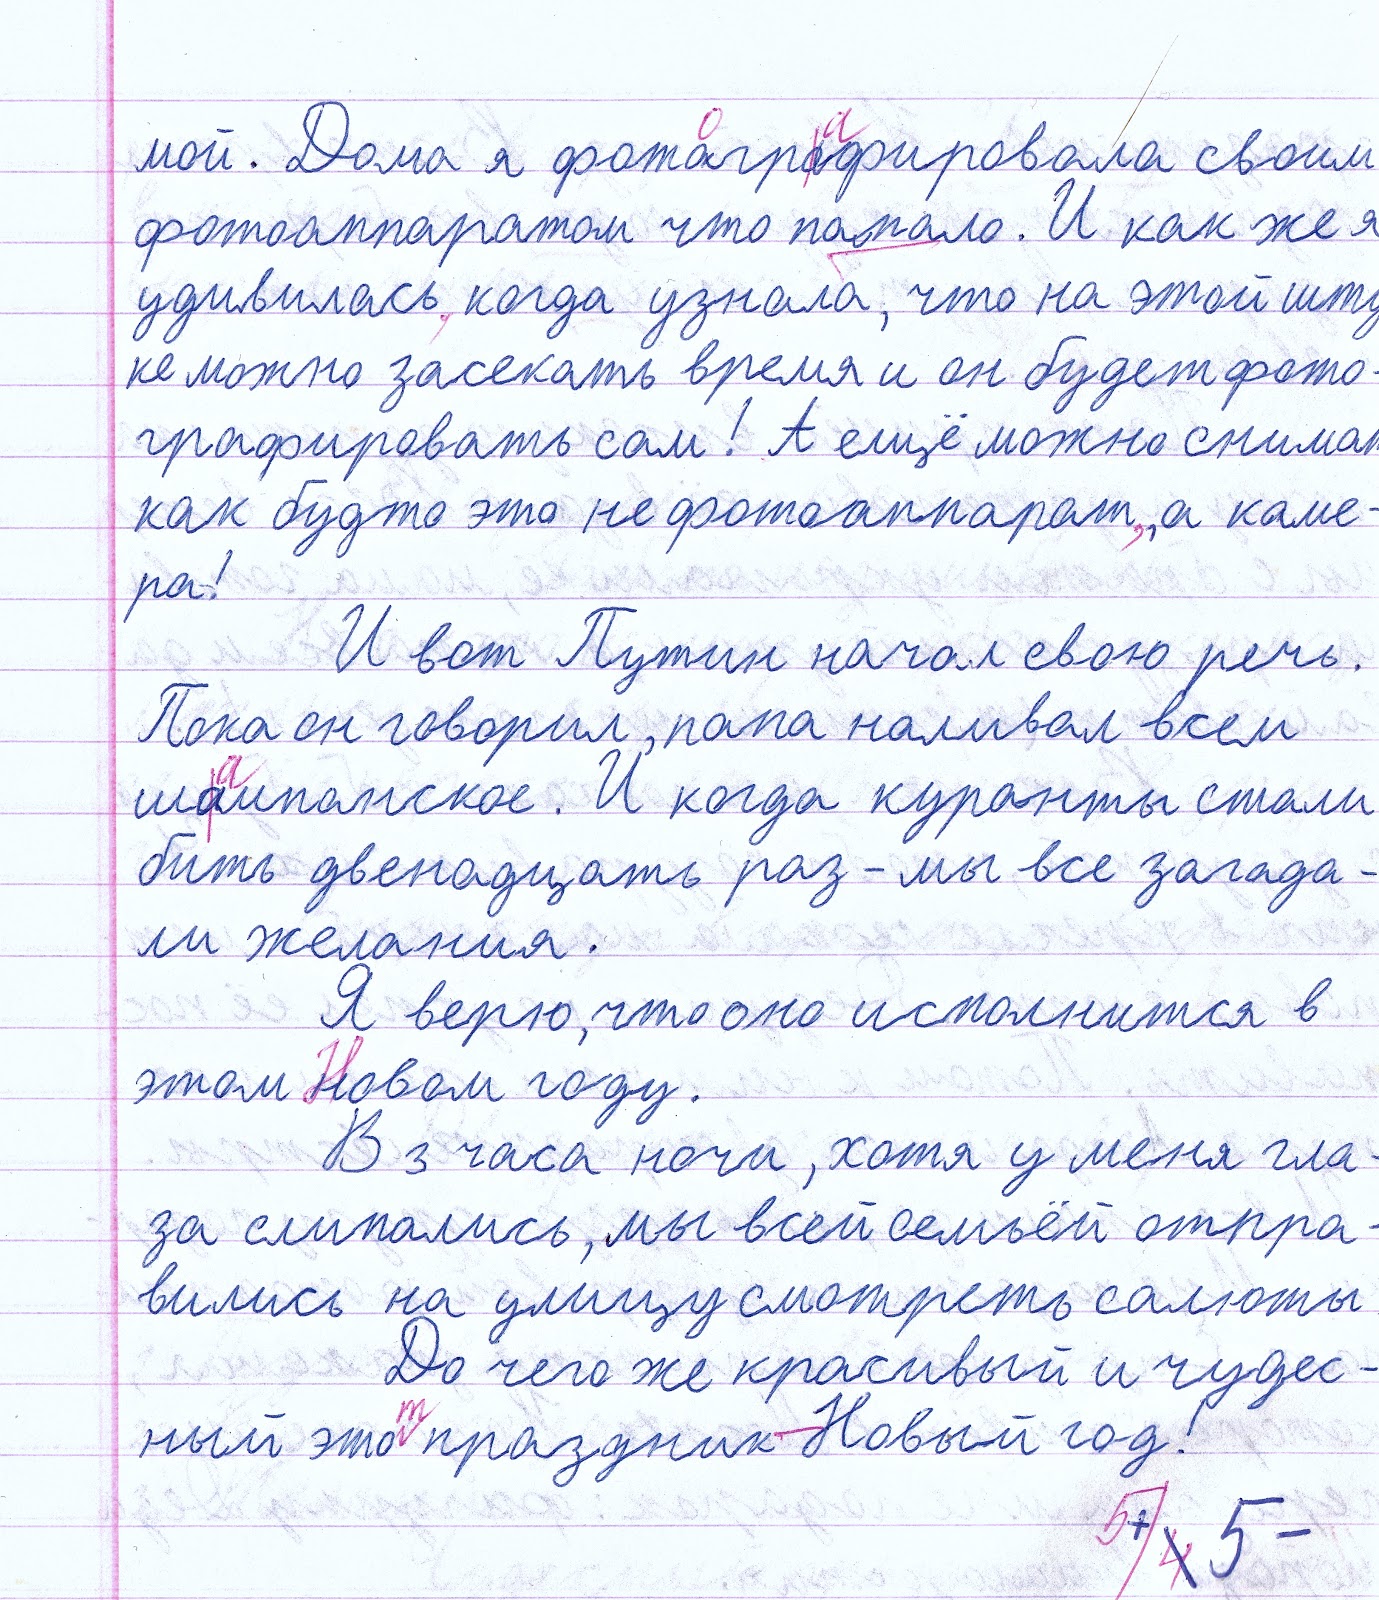 мой. Дома я фотаграфировала своим
фотоаппаратом что папало. И как же я
удивилась, когда узнала, что на этой шту
ке можно засекать время и он будет фото-
графировать сам! А ещё можно снимат
как будто это не фотоаппарат, а каме-
ра!
И вот Путин начал свою речь.
Пока он говорил, папа наливал всем
шампанское. И когда куранты стали
бить двенадцать раз - мы все загада-
ли желания.
Я верю, что оно исполнится в
этом Новом году.
В 3 часа ночи, хотя у меня гла-
за слипались, мы всей семьёй отпра-
вились на улицу смотреть салюты
До чего же красивый и чудес-
ный это праздник - Новый год!
5+/4 5-